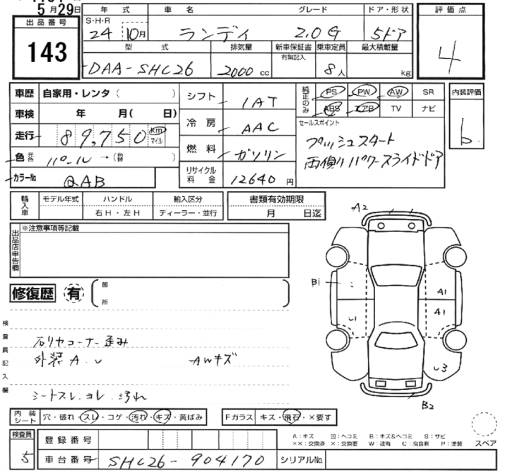 5月29日
出品番号
143
年式 車名 グレード ドア・形状
S・H・R
24年 10月 ランディ 2.0G 5ドア
型式 排気量 新車保証書 乗車定員 最大積載量
有無記入
DAA-SHC26 2000cc 8人 kg
評価点
4
車歴 自家用・レンタ( )
車検 年 月( 日)
走行 89,750 km マイル
色 パール→
カラーNo QAB
シフト IAT
冷房 AAC
燃料 ガソリン
リサイクル料金 12640円
純正のみ PS PW AW SR
ABS エアB TV ナビ
セールスポイント
プッシュスタート
両側パワースライドドア
内装評価
b
輸入車 モデル年式 ハンドル 輸入区分
年 右H・左H ディーラー・並行
書類有効期限
月 日迄
出品店申告欄
※注意事項等記載
修復歴 有
部所
検査員記入欄
石リヤコーナー歪み
外装A.U AWキズ
シートスレ.コレ.汚れ
A2
B1
A1
A1
U1
U3
B2
内装シート 穴・破れ・スレ・コゲ・汚れ・キズ・黄ばみ
Fガラス キズ・飛石・×要す
スペア
A:キズ U:ヘコミ B:キズ&ヘコミ S:サビ
検査員
5
登録番号
車台番号 SHC26-904170 シリアルNo.